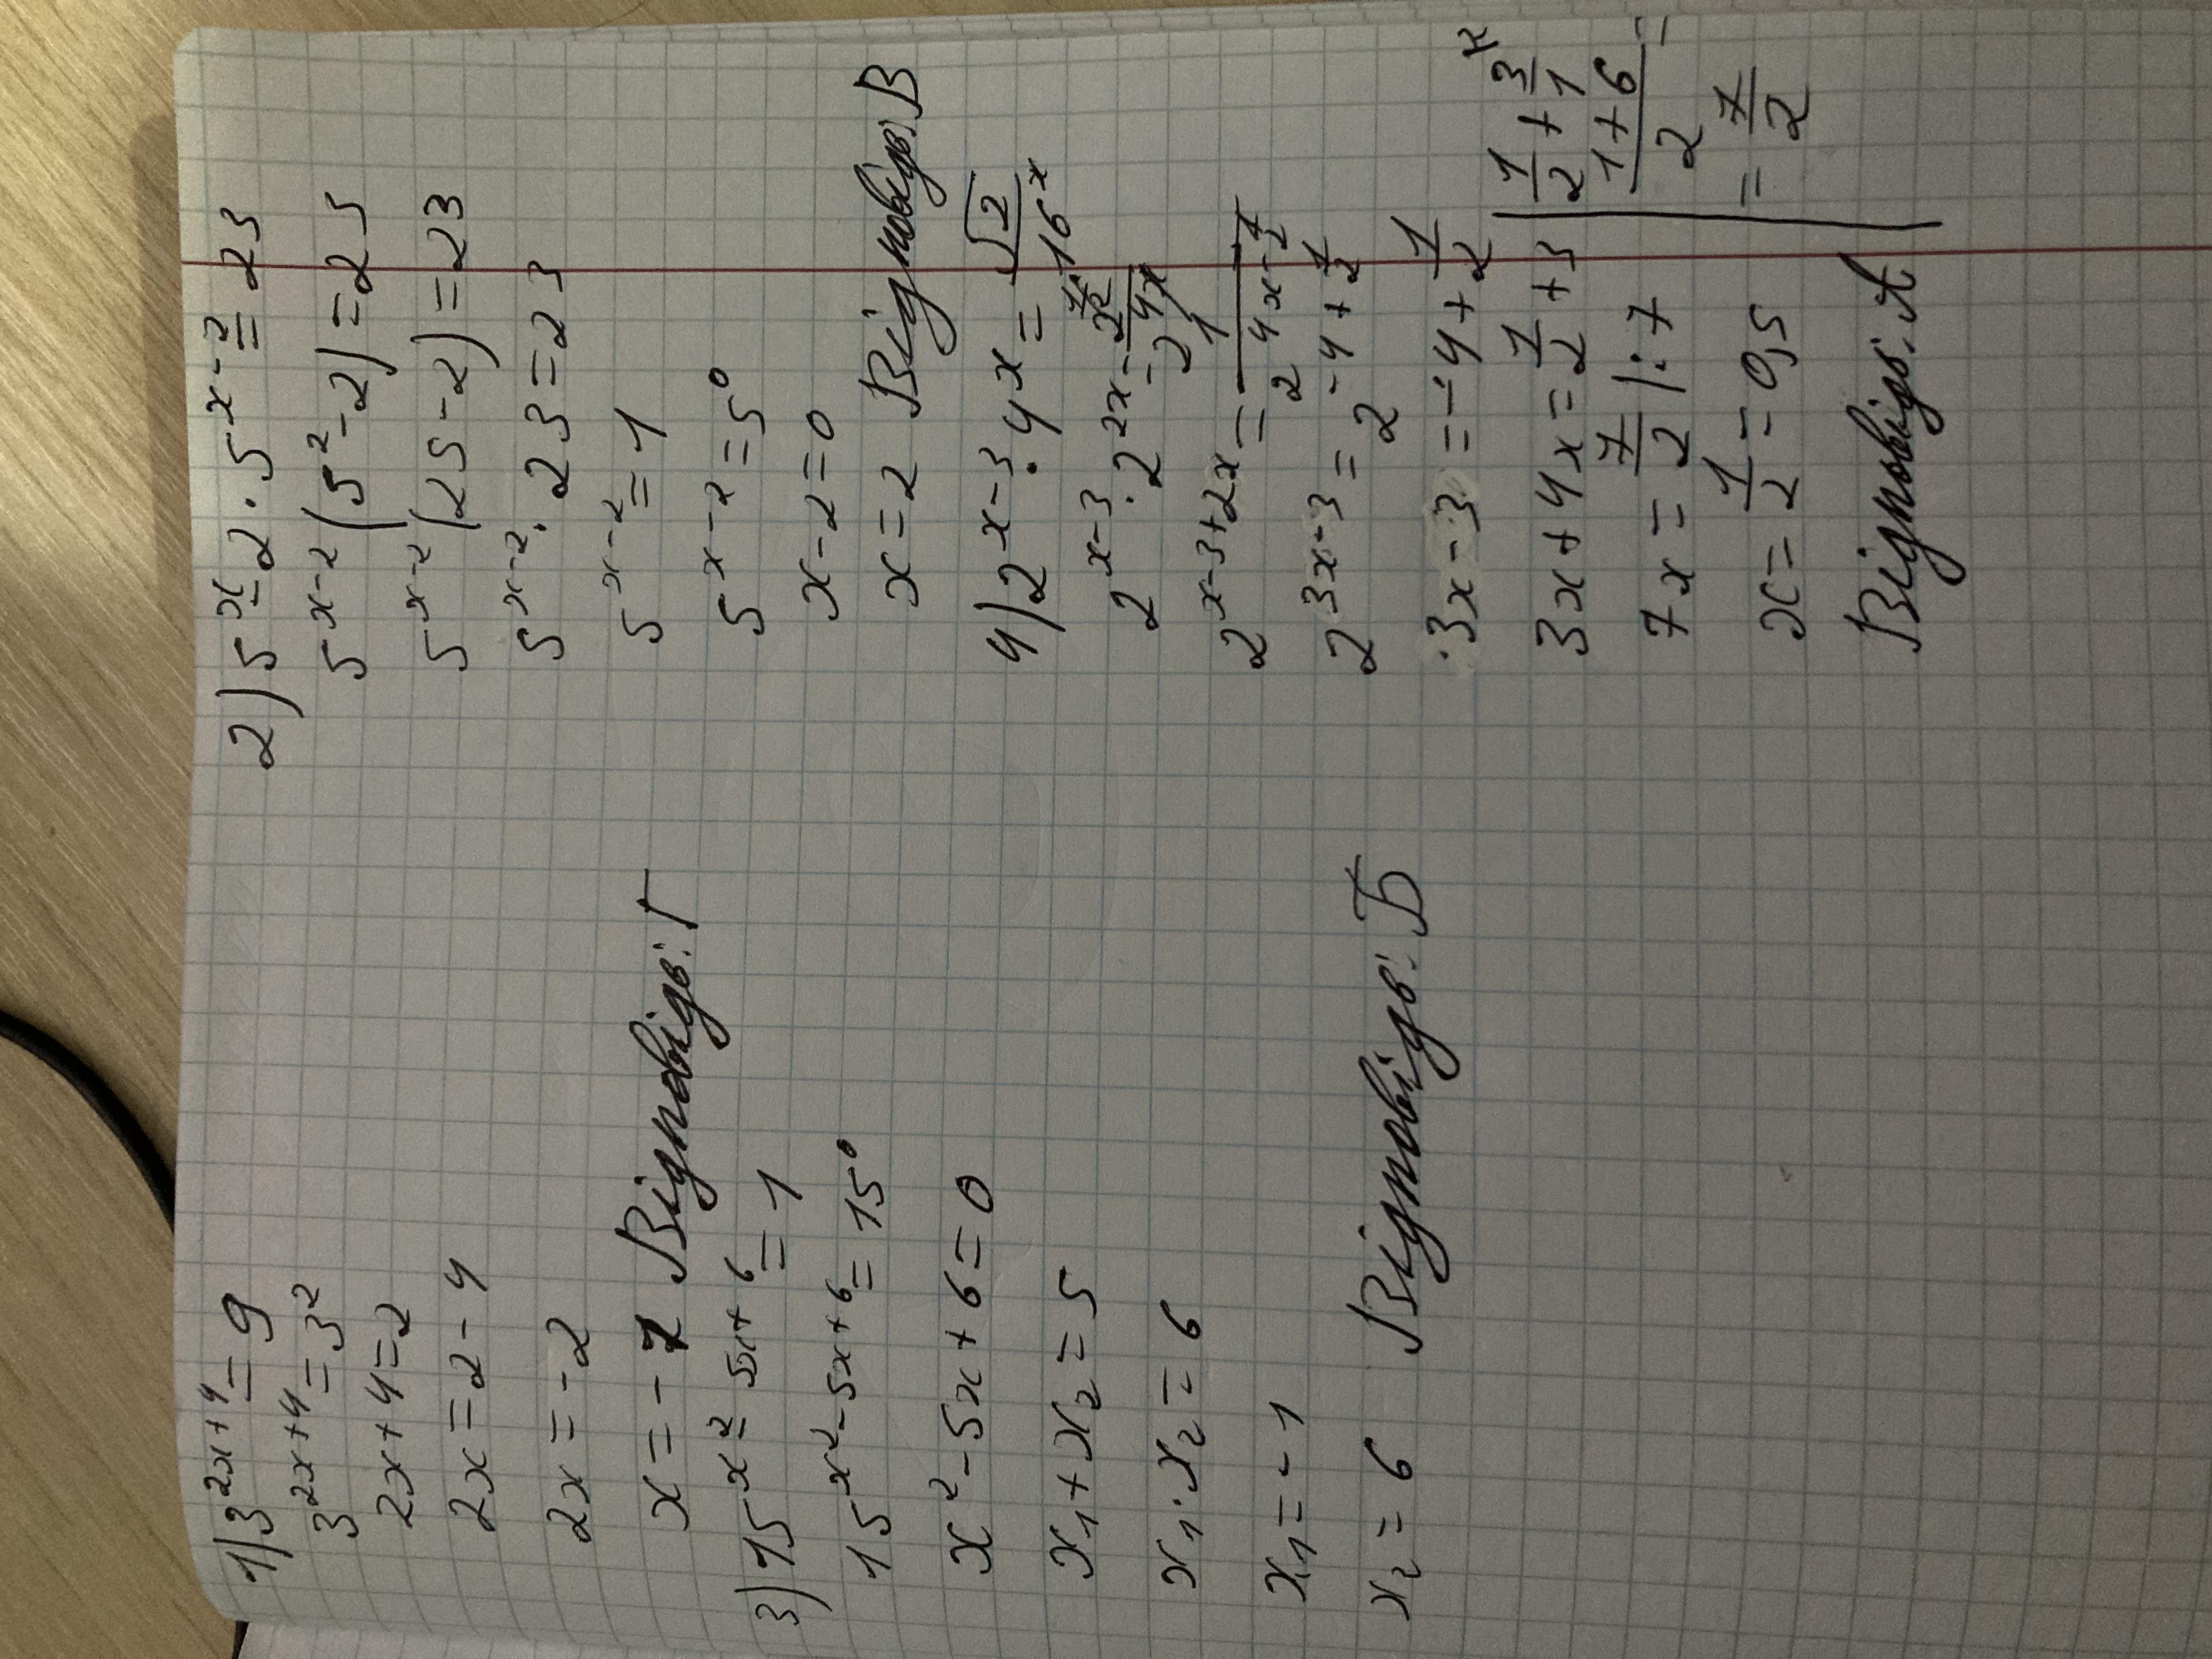 1) 3^{2x+4} = 9
3^{2x+4} = 3^2
2x+4=2
2x=2-4
2x=-2
x=-1 Відповідь: Г
3) 15^{x^2-5x+6} = 1
15^{x^2-5x+6} = 15^0
x^2-5x+6=0
x_1+x_2=5
x_1·x_2=6
x_1=-1
x_2=6 Відповідь: Б
2) 5^x-2·5^{x-2}=23
5^{x-2}(5^2-2)=23
5^{x-2}(25-2)=23
5^{x-2}·23=23
5^{x-2}=1
5^{x-2}=5^0
x-2=0
x=2 Відповідь: В
4) 2^{x-3}·4^x=\frac{\sqrt{2}}{16^x}
2^{x-3}·2^{2x}=\frac{2^{\frac{1}{2}}}{2^{4x}}
2^{x-3+2x}=\frac{1}{2^{4x-\frac{1}{2}}}
2^{3x-3}=2^{-4+\frac{1}{2}}
3x-3=-4+\frac{1}{2}
3x+4x=\frac{1}{2}+3
7x=\frac{7}{2} |:7
x=\frac{1}{2}=0,5
Відповідь: А
\frac{1}{2}+\frac{3}{1}
\frac{1+6}{2}=
=\frac{7}{2}